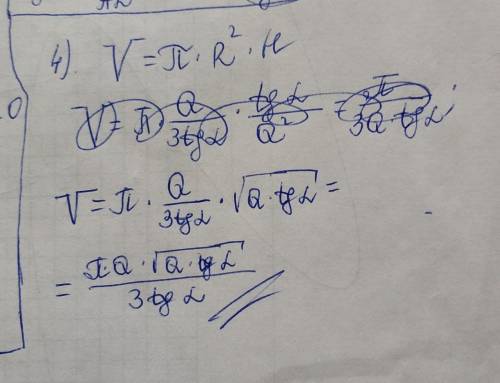 4). V = π · R² · H
V = π · Q/(3tgα) · tgα/Q² = π/(3Q · tgα);
V = π · Q/(3tgα) · √(Q · tgα) =
= (π · Q · √(Q · tgα))/(3tgα)